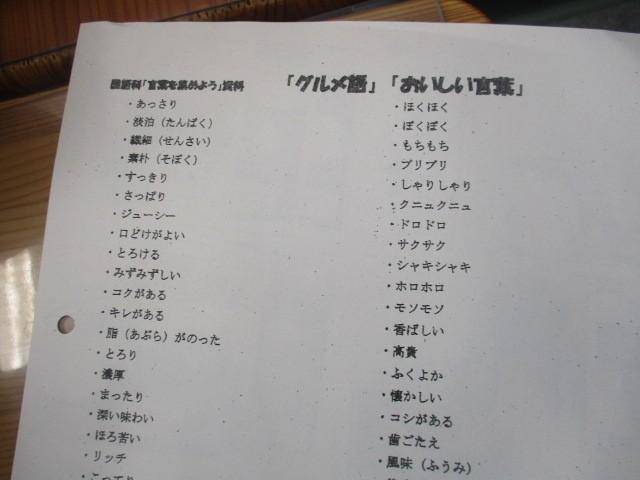 国語科「言葉を集めよう」資料
「グルメ語」「おいしい言葉」
・あっさり
・淡泊（たんぱく）
・繊細（せんさい）
・素朴（そぼく）
・すっきり
・さっぱり
・ジューシー
・口どけがよい
・とろける
・みずみずしい
・コクがある
・キレがある
・脂（あぶら）がのった
・とろり
・濃厚
・まったり
・深い味わい
・ほろ苦い
・リッチ
・こってり
・ほくほく
・ぽくぽく
・もちもち
・プリプリ
・しゃりしゃり
・クニュクニュ
・ドロドロ
・サクサク
・シャキシャキ
・ホロホロ
・モソモソ
・香ばしい
・高貴
・ふくよか
・懐かしい
・コシがある
・歯ごたえ
・風味（ふうみ）